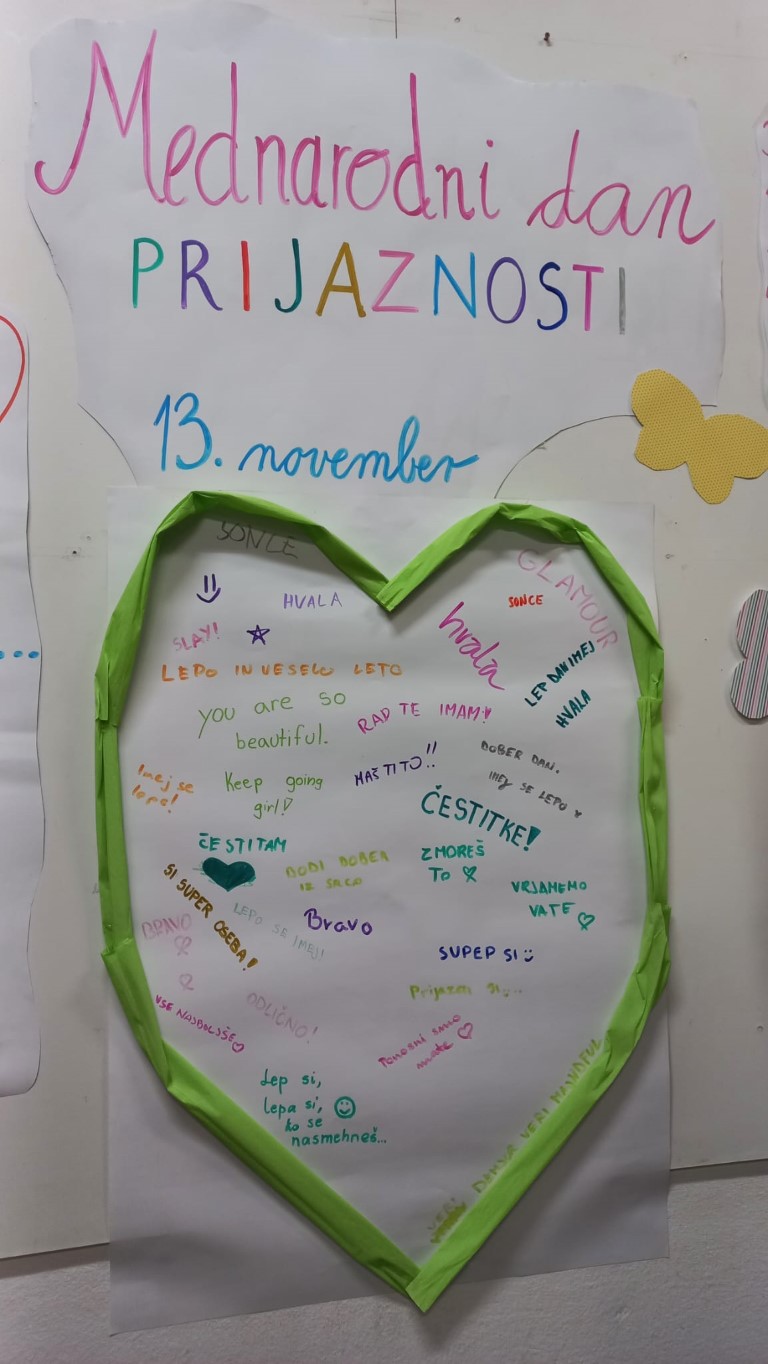 Mednarodni dan
PRIJAZNOSTI
13. november
SONCE
GLAMOUR
HVALA
SONCE
SLAY!
hvala
LEP DAN IMEJ
HVALA
LEPO IN VESELO LETO
you are so
beautiful.
RAD TE IMAM!
Imej se
lepo!
Keep going
girl!
NAŠ TI TO!!
DOBER DAN.
IMEJ SE LEPO
ČESTITKE!
ČESTITAM
BODI DOBER
IZ SRCA
ZMOREŠ
TO
VRJAMEMO
VATE
SI SUPER OSEBA!
BRAVO
LEPO SE IMEJ!
Bravo
SUPEP SI
Prijazen si...
VSE NAJBOLJŠE
ODLIČNO!
Ponosni smo
nate
Lep si,
lepa si,
ko se
nasmehneš...
VERI